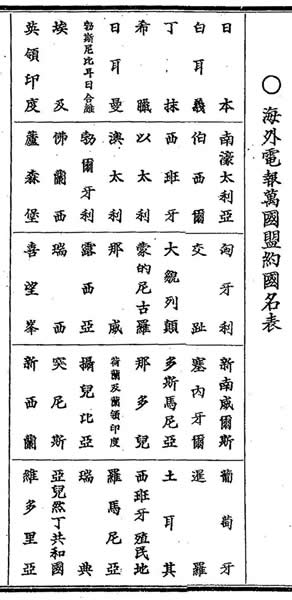 ○海外電報萬國盟約國名表
日本
白耳義
丁抹
希臘
日耳曼
勃斯尼比耳日合融
埃及
英領印度
南濠太利亞
伯西爾
西班牙
以太利
澳太利
勃爾牙利
佛蘭西
蘆森堡
匈牙利
交趾
大䫉列顛
蒙的尼古羅
那威
露西亞
瑞西
喜望峯
新南威爾斯
塞內牙爾
多斯馬尼亞
那多兒
荷蘭及蘭領印度
攝兒比亞
突尼斯
新西蘭
葡萄牙
暹羅
土耳其
西班牙殖民地
羅馬尼亞
瑞典
亞兒然丁共和國
維多里亞